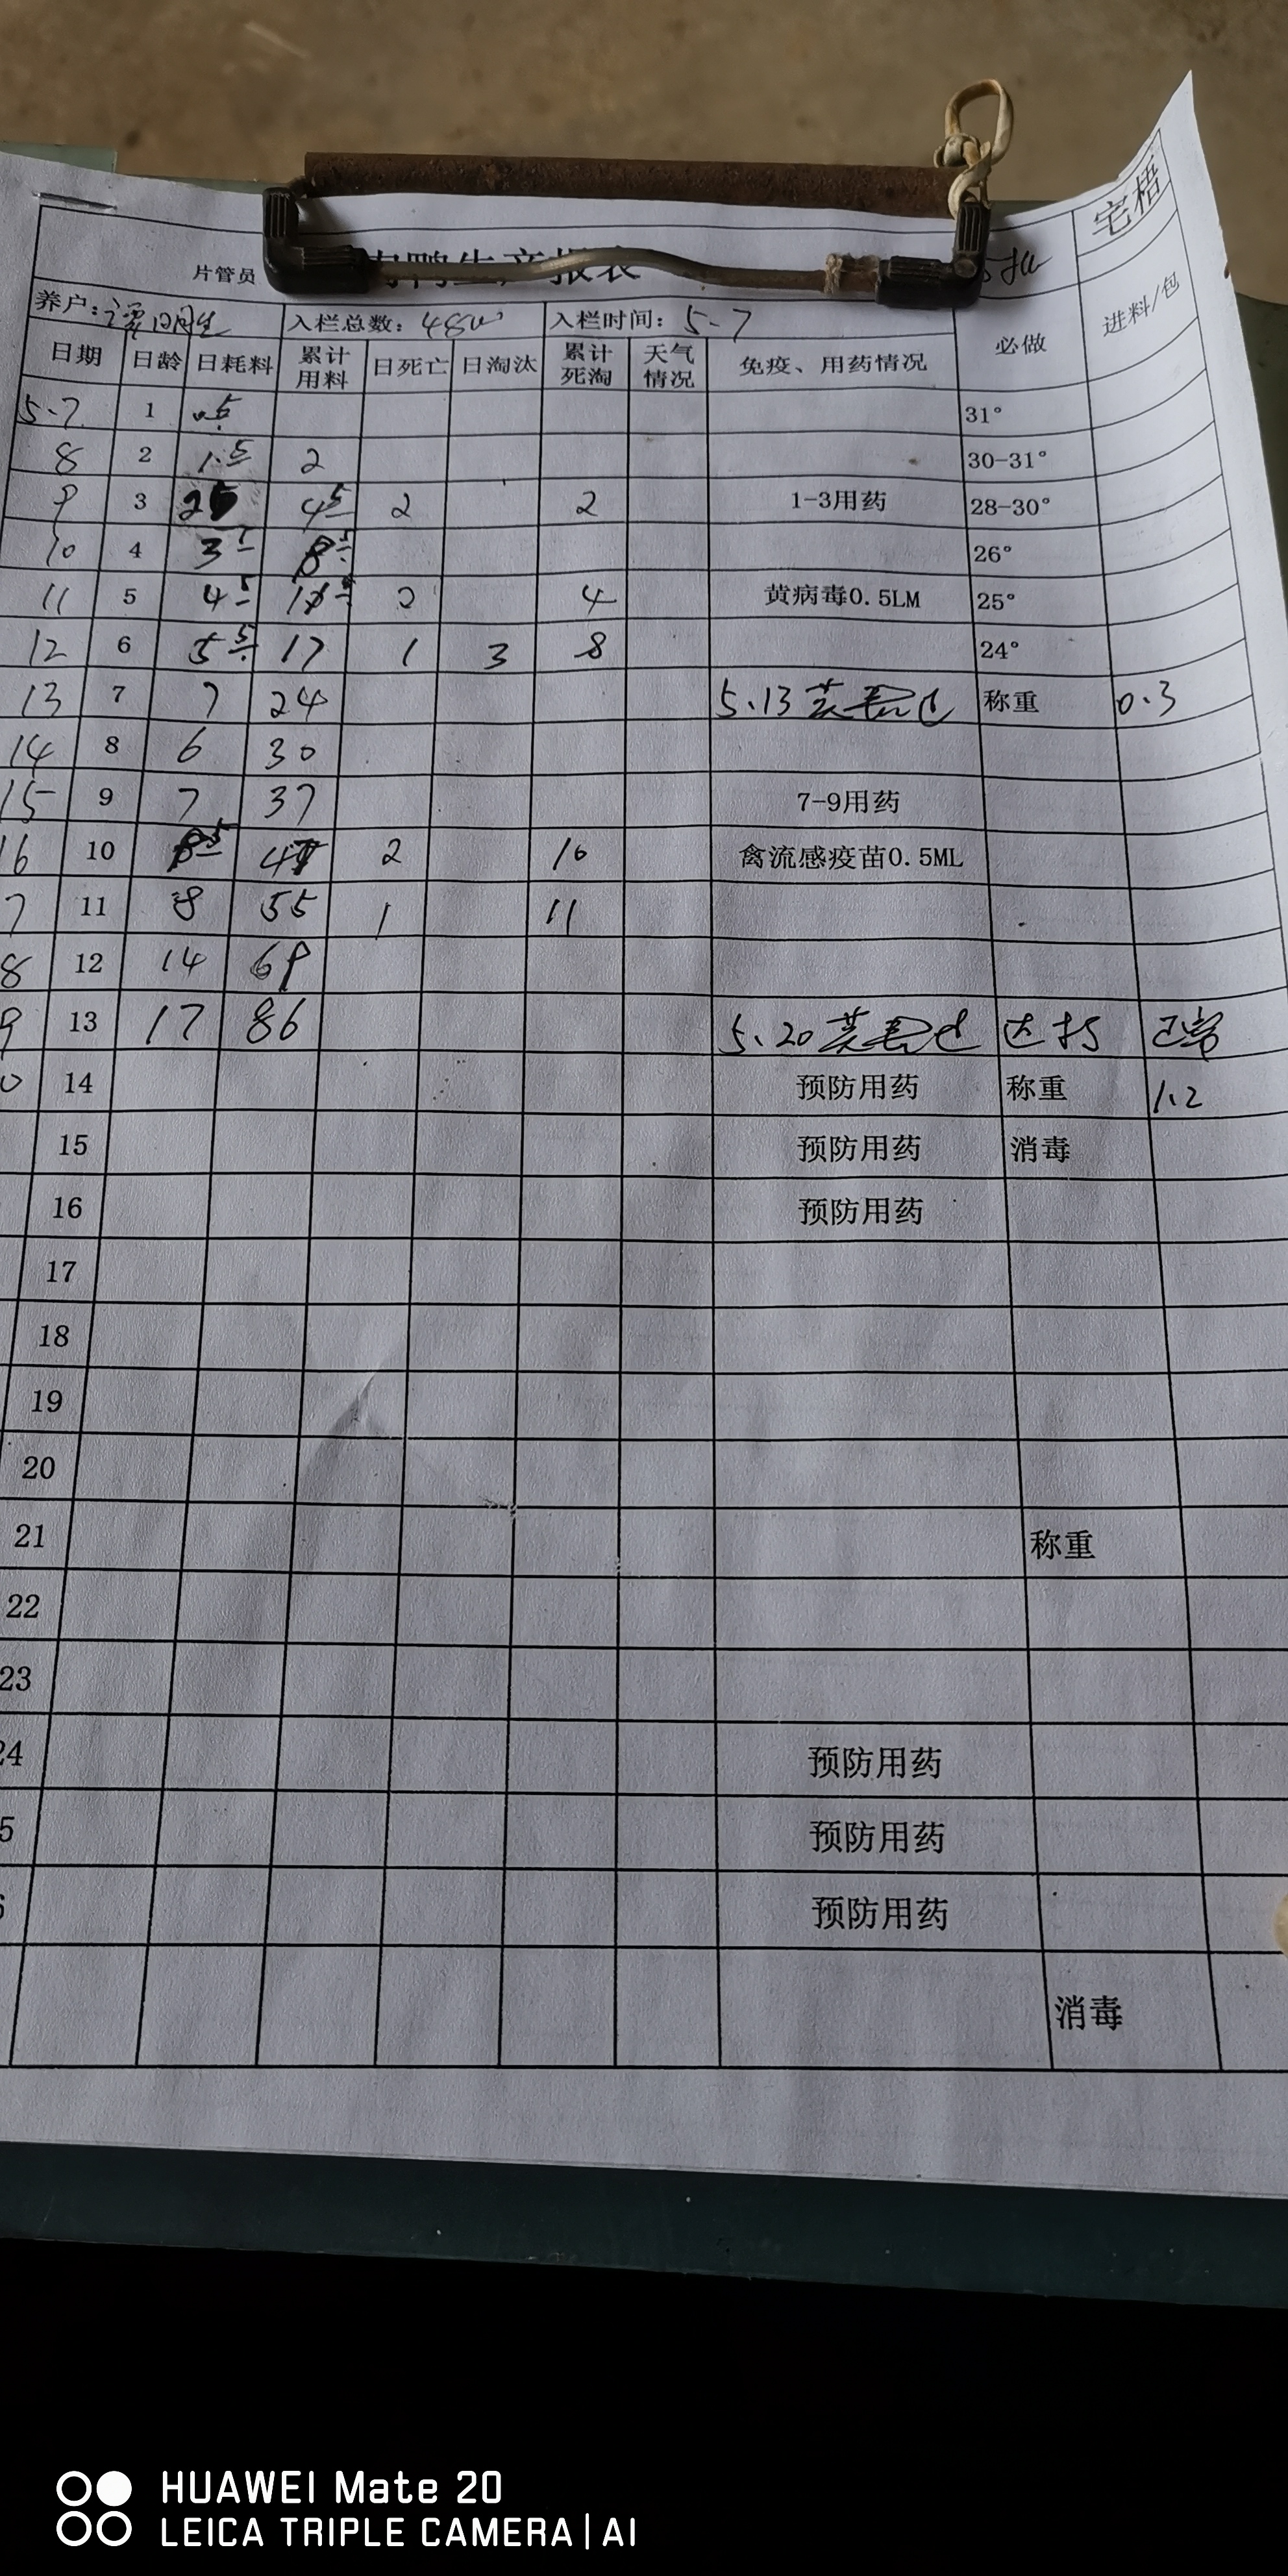 宅梧
肉鸭生产报表
片管员
养户: 入栏总数: 4800 入栏时间: 5-7
日期 日龄 日耗料 累计用料 日死亡 日淘汰 累计死淘 天气情况 免疫、用药情况 必做 进料/包
5-7 1 31°
8 2 1.5 2 30-31°
9 3 25 45 2 2 1-3用药 28-30°
10 4 35 85 26°
11 5 45 2 4 黄病毒0.5LM 25°
12 6 55 17 1 3 8 24°
13 7 7 24 5.13 称重 0.3
14 8 6 30
15 9 7 37 7-9用药
16 10 47 2 10 禽流感疫苗0.5ML
7 11 8 55 1 11
8 12 14 69
9 13 17 86 5.20 达标 正常
0 14 预防用药 称重 1.2
15 预防用药 消毒
16 预防用药
17
18
19
20
21 称重
22
23
24 预防用药
5 预防用药
6 预防用药
消毒
HUAWEI Mate 20
LEICA TRIPLE CAMERA | AI